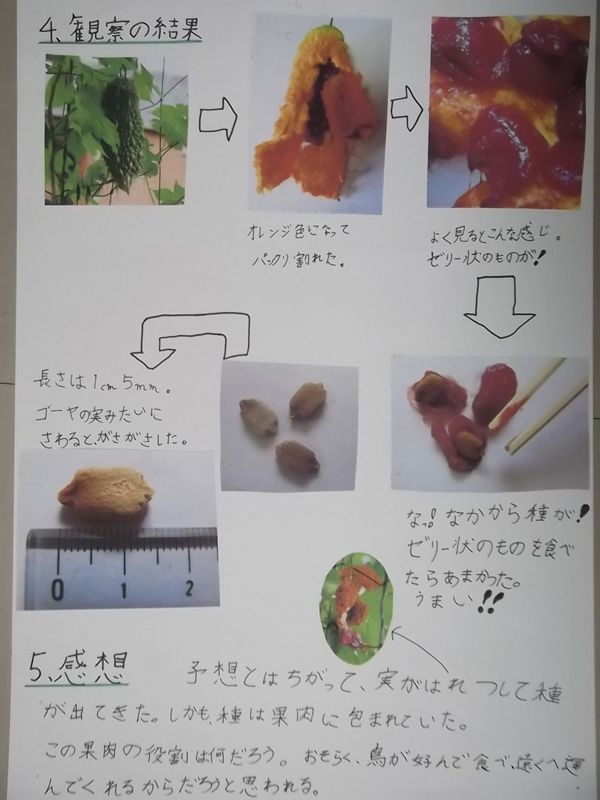 4、観察の結果
オレンジ色になって
パックリ割れた。
よく見るとこんな感じ。
ゼリー状のものが!
長さは1cm5mm。
ゴーヤの実みたいに
さわると、がさがさした。
0 1 2
なっ!!なかから種が!
ゼリー状のものを食べ
たらあまかった。
うまい!!
5、感想
予想とはちがって、実がはれつして種
が出てきた。しかも、種は果肉に包まれていた。
この果肉の役割は何だろう。おそらく、鳥が好んで食べ、遠くへ運
んでくれるからだろうと思われる。